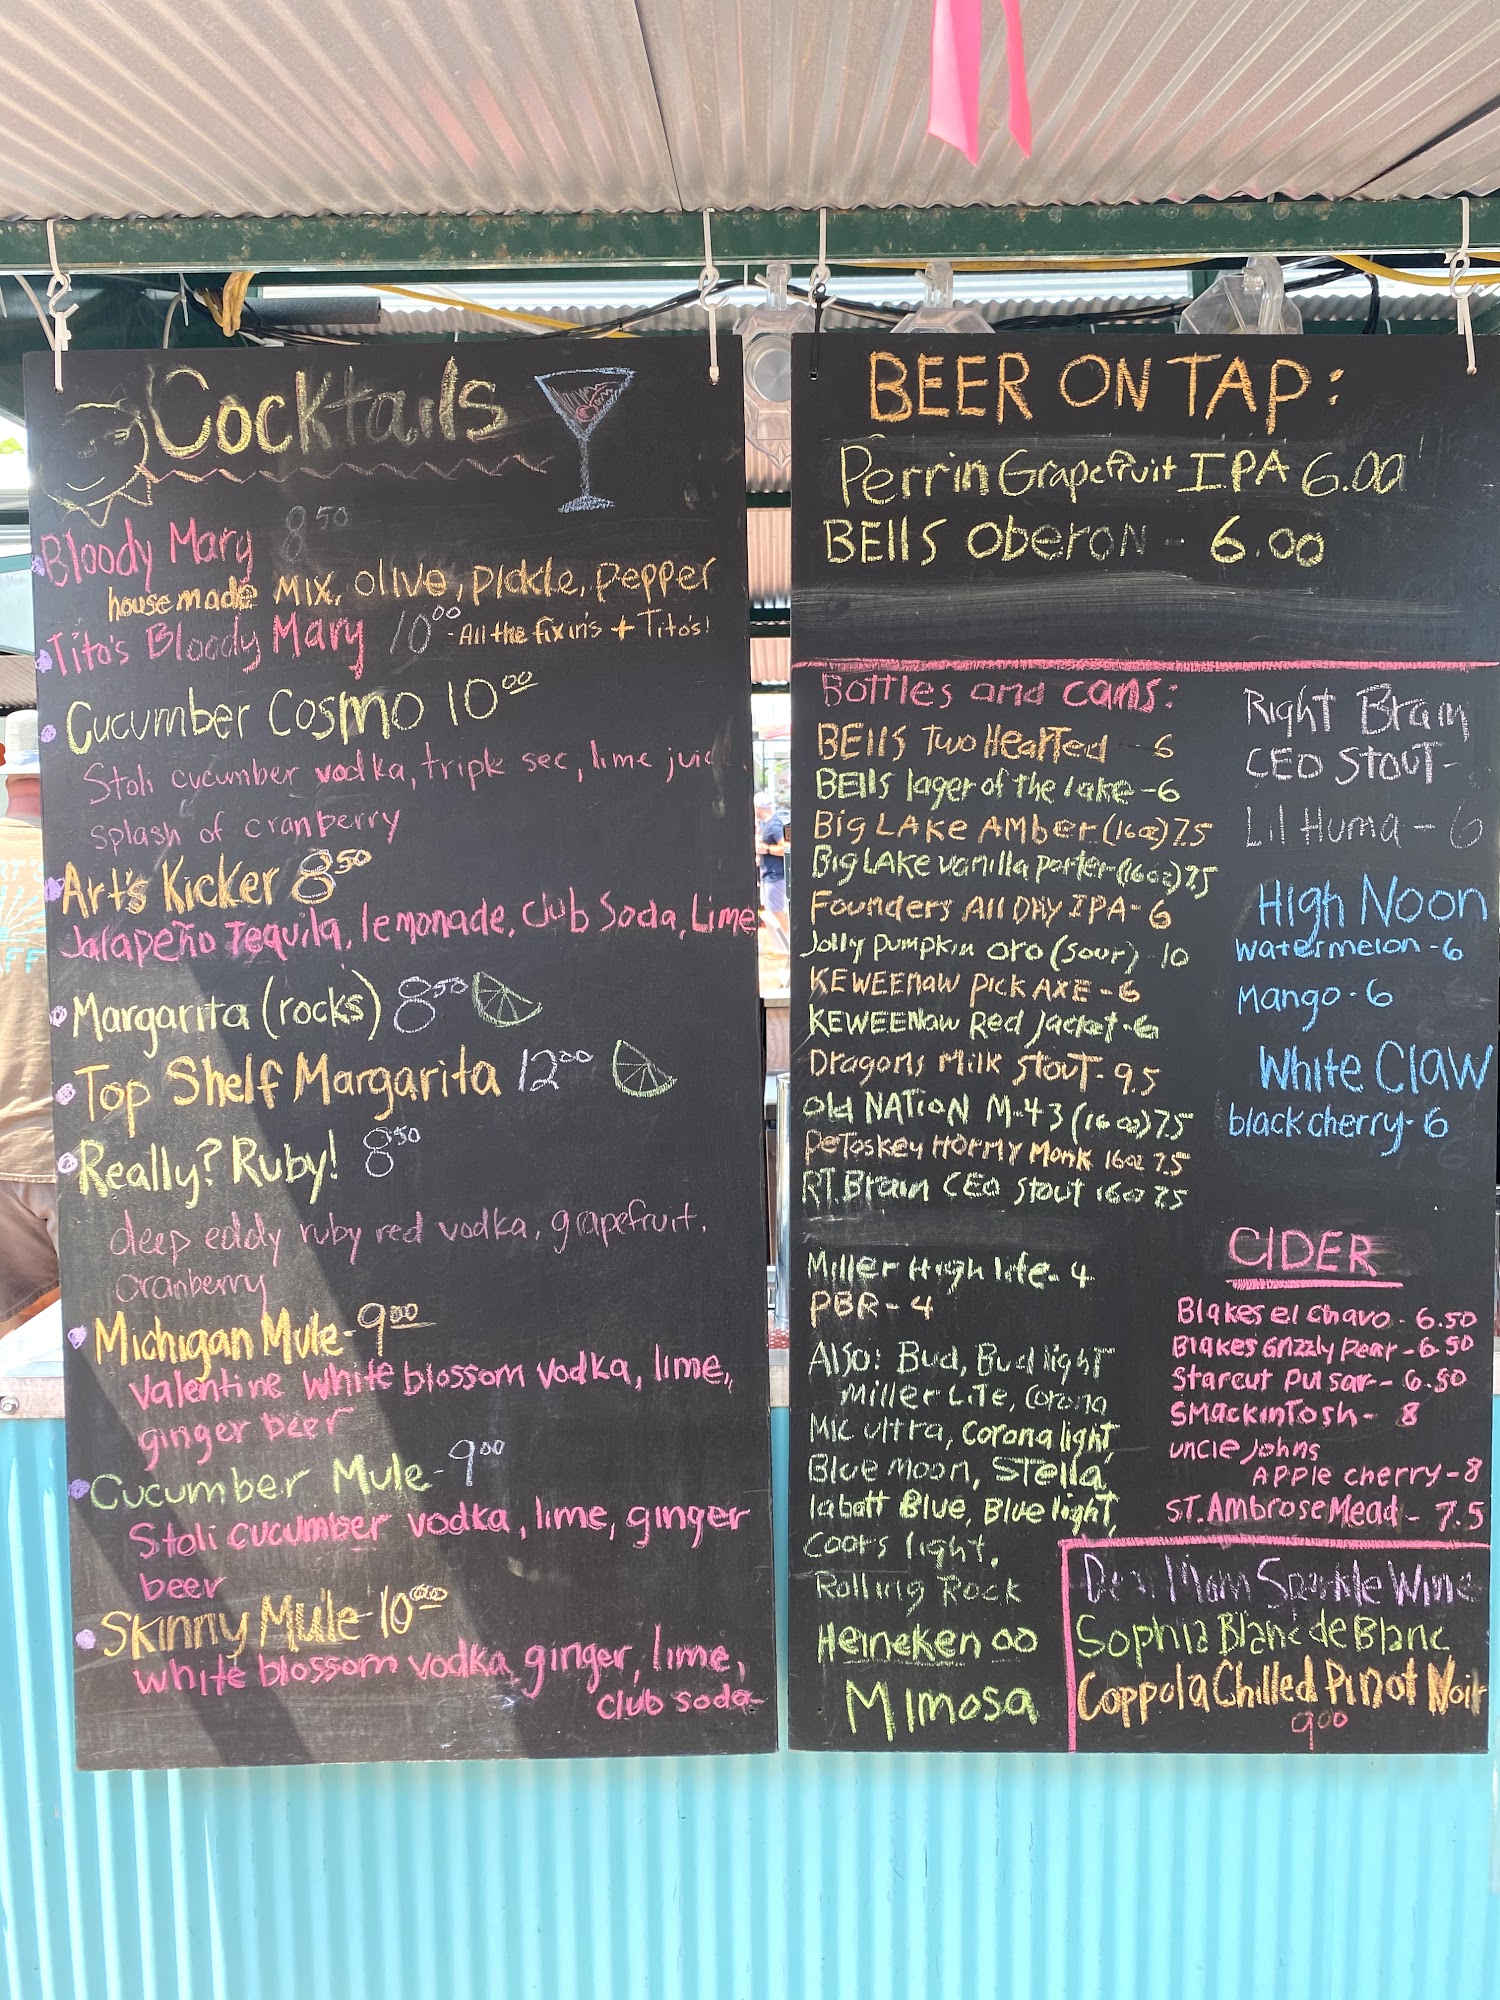 Cocktails
Bloody Mary 8 50
house made MIX, olive, pickle, pepper
Tito's Bloody Mary 10 00 - All the fixin's + Tito's!
Cucumber Cosmo 10 00
Stoli cucumber vodka, triple sec, lime juice
splash of cranberry
Art's Kicker 8 50
Jalapeño Tequila, lemonade, Club Soda, Lime
Margarita (rocks) 8 50
Top Shelf Margarita 12 00
Really? Ruby! 8 50
deep eddy ruby red vodka, grapefruit,
cranberry
Michigan Mule - 9 00
Valentine white blossom vodka, lime,
ginger beer
Cucumber Mule - 9 00
Stoli cucumber vodka, lime, ginger
beer
Skinny Mule - 10 00
White blossom vodka, ginger, lime,
club soda
BEER ON TAP:
Perrin Grapefruit IPA 6.00
BEllS Oberon - 6.00
Bottles and cans:
BEllS Two HearTed 6
BEllS lager of the lake - 6
Big LAKe AMber (16oz) 7.5
Big LAKe vanilla porter (16oz) 7.5
Founders All DAY IPA - 6
Jolly Pumpkin oro (sour) - 10
KEWEENaw PICK AXE - 6
KEWEENaw Red Jacket - 6
Dragons Milk STouT - 9.5
Old NATioN M-43 (16oz) 7.5
PeToskey HORNY Monk 16oz 7.5
RT. Brain CEO Stout 16oz 7.5
Miller High life - 4
PBR - 4
Also: Bud, Bud light
Miller LiTe, Corona
Mic ultra, Corona light,
Blue moon, STella,
labatt Blue, Blue light,
Coors light,
Rolling Rock
Heineken 00
Mimosa
Right Brain
CEO STOUT -
Lil Huma - 6
High Noon
watermelon - 6
Mango - 6
White Claw
black cherry - 6
CIDER
Blakes el Chavo - 6.50
Blakes Grizzly Pear - 6.50
Starcut Pulsar - 6.50
SMackinTosh - 8
uncle Johns
APPle cherry - 8
ST. Ambrose Mead - 7.5
Dear Mom Sparkle Wine
Sophia Blanc de Blanc
Coppola Chilled Pinot Noir
9 00